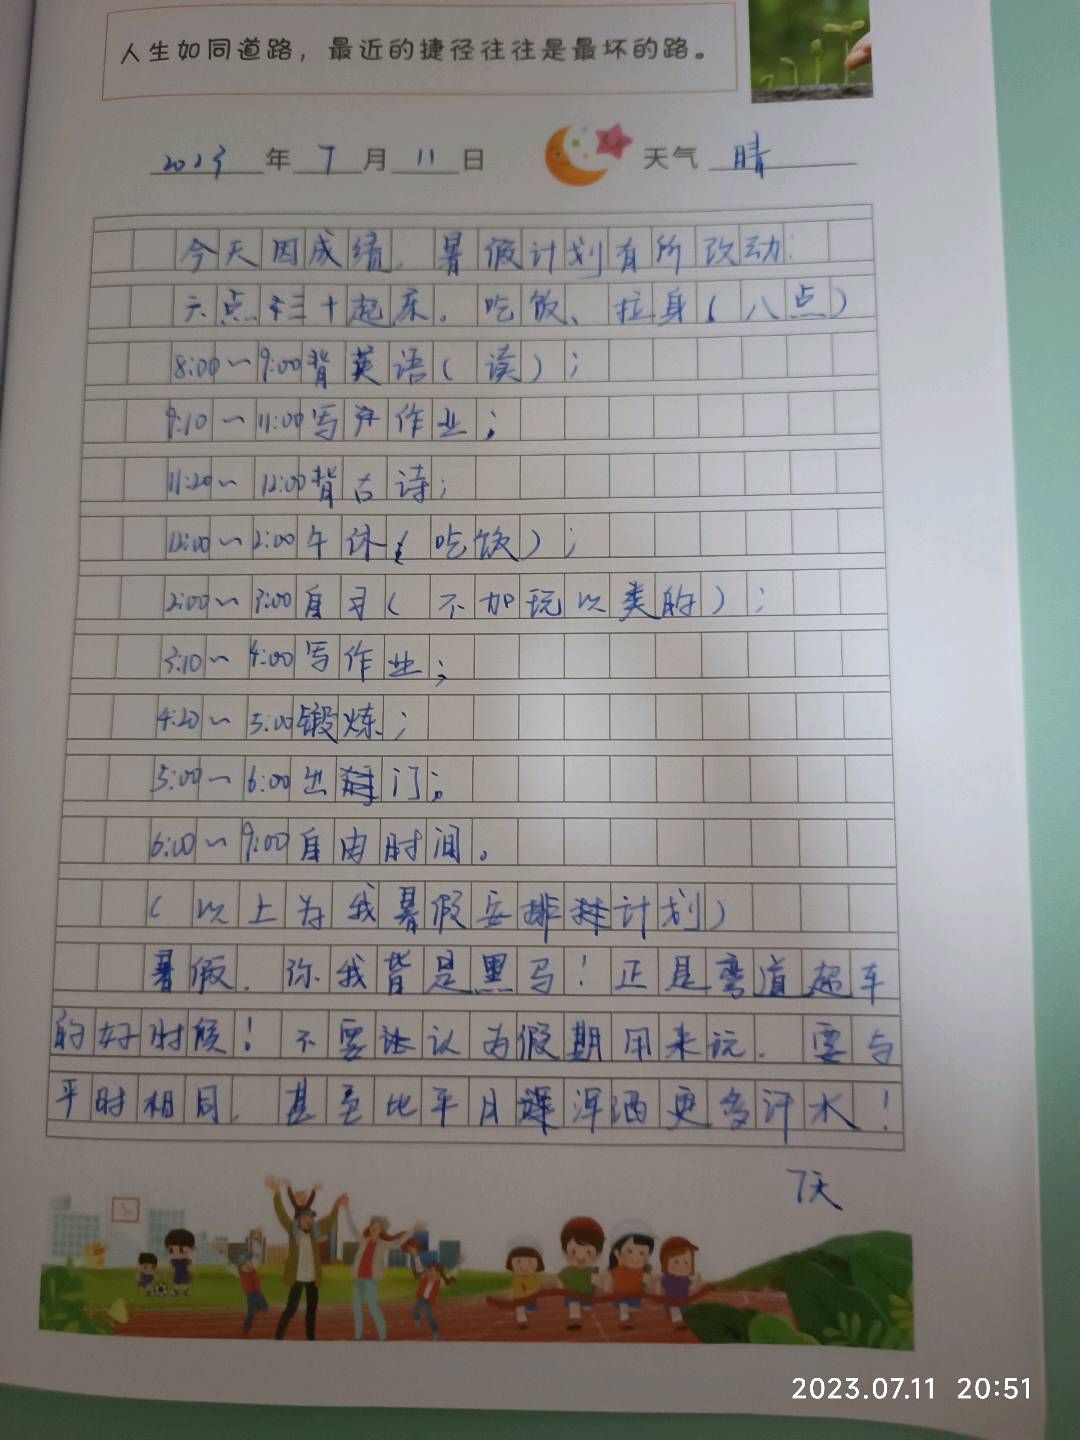 人生如同道路，最近的捷径往往是最坏的路。
2023年 7月 11日 天气 晴
今天因成绩，暑假计划有所改动：
六点三十起床。吃饭、拉身（八点）
8:00～9:00背英语（读）；
9:10～11:00写作业；
11:20～12:00背古诗；
12:00～2:00午休（吃饭）；
2:00～3:00自习（不加玩以类的）；
3:10～4:00写作业；
4:20～5:00锻炼；
5:00～6:00出门；
6:00～9:00自由时间。
（以上为我暑假安排计划）
暑假，你我皆是黑马！正是弯道超车
的好时候！不要认为假期用来玩，要与
平时相同，甚至比平日挥洒更多汗水！
7天
2023.07.11 20:51